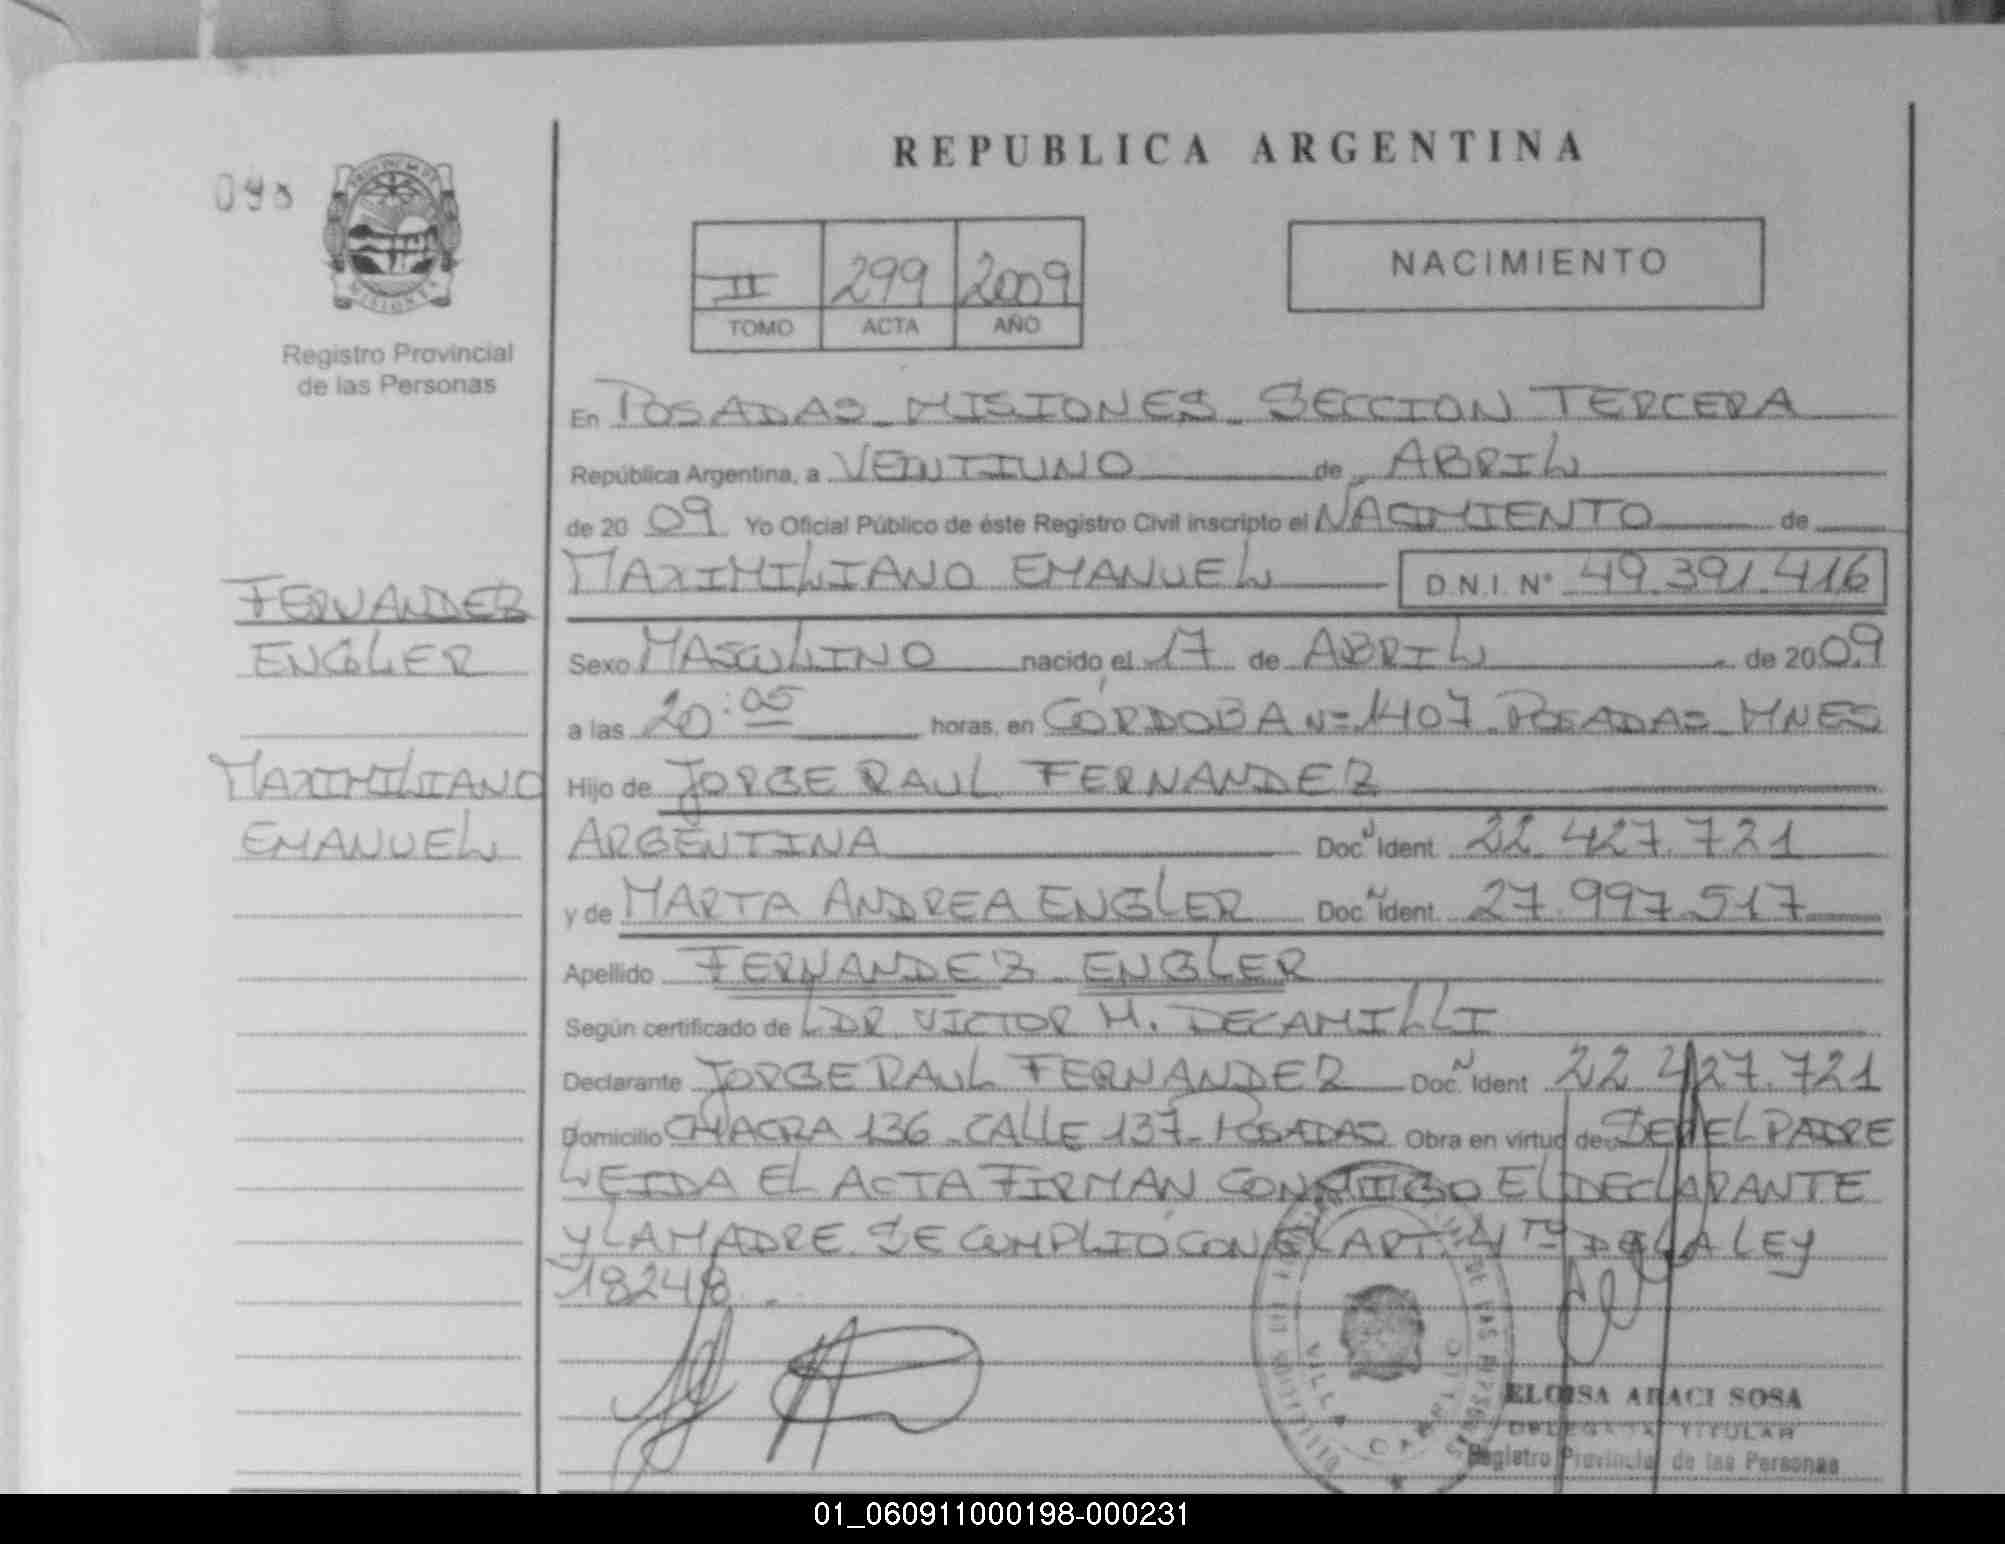 098
REPUBLICA ARGENTINA
II 299 2009
TOMO ACTA AÑO
NACIMIENTO
Registro Provincial
de las Personas
En POSADAS - MISIONES - SECCION TERCERA
República Argentina, a VEINTIUNO de ABRIL
de 20 09 Yo Oficial Público de éste Registro Civil inscripto el NACIMIENTO de
MAXIMILIANO EMANUEL D.N.I. N° 49.391.416
FERNANDEZ
ENGLER
MAXIMILIANO
EMANUEL
Sexo MASCULINO nacido el 17 de ABRIL de 20 09
a las 20:05 horas, en CÓRDOBA Nº 1407 - POSADAS - MNES
Hijo de JORGE RAUL FERNANDEZ
ARGENTINA Doc. Ident 22.427.721
y de MARTA ANDREA ENGLER Doc. Ident. 27.997.517
Apellido FERNANDEZ ENGLER
Según certificado de DR. VICTOR M. DECAMILLI
Declarante JORGE RAUL FERNANDEZ Doc. Ident 22.427.721
Domicilio CHACRA 136 - CALLE 137 - POSADAS Obra en virtud de SER EL PADRE
LEIDA EL ACTA FIRMAN CONMIGO EL DECLARANTE
Y LA MADRE. SE CUMPLIÓ CON EL ART. 4 DE LA LEY
18248.-
VILLA
DE LAS PERSONAS
ELOISA ARACI SOSA
DELEGADA TITULAR
Registro Provincial de las Personas
01_060911000198-000231